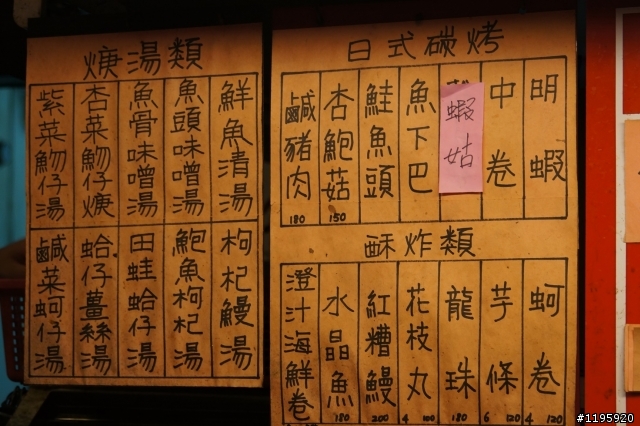 羹湯類
鮮魚清湯
魚頭味噌湯
魚骨味噌湯
杏菜魩仔焿
紫菜魩仔湯
枸杞鰻湯
鮑魚枸杞湯
田蛙蛤仔湯
蛤仔薑絲湯
鹹菜蚵仔湯
日式碳烤
明蝦
中卷
蝦姑
魚下巴
鮭魚頭
杏鮑菇 150
鹹豬肉 180
酥炸類
蚵卷 4 120
芋條 6 120
龍珠 180
花枝丸 4 100
紅糟鰻 200
水晶魚 180
澄汁海鮮卷
#1195920